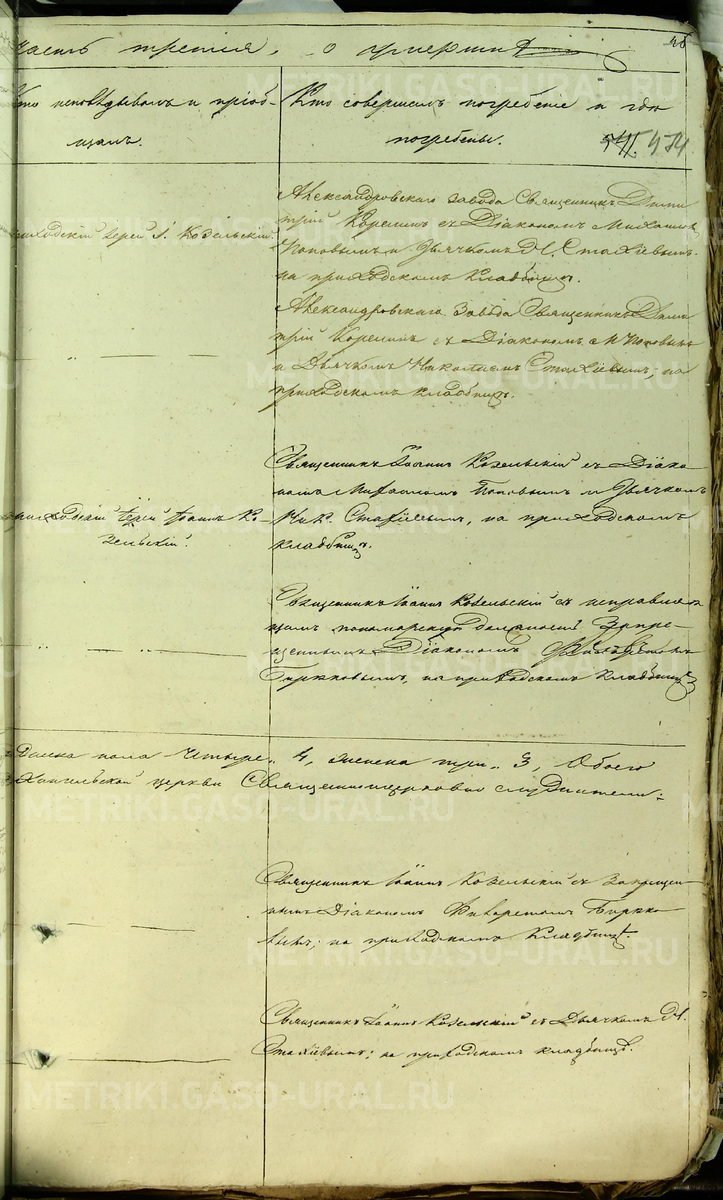 Часть третія, о умершихъ
Кто исповѣдывалъ и пріоб-
щалъ.
Кто совершалъ погребеніе и гдѣ
погребены.
474
Приходскій Іерей І. Козельскій
Александровскаго завода Священникъ Дими
трій Корелинъ съ Діакономъ Михаиломъ
Поповымъ и Дьячкомъ Н. Стахіевымъ
на приходскомъ кладбищѣ.
Александровскаго Завода Священникъ Дими
трій Корелинъ съ Діакономъ М Поповымъ
и Дьячкомъ Николаемъ Стахіевымъ; на
приходскомъ кладбищѣ.
Приходскій Іерей Іоаннъ Ко-
зельскій.
Священникъ Іоаннъ Козельскій съ Діако
номъ Михаиломъ Поповымъ и Дьячкомъ
Ник. Стахіевымъ, на приходскомъ
кладбищѣ.
Священникъ Іоаннъ Козельскій съ исправляю
щимъ пономарскую должность Запре-
щеннымъ Діакономъ
Бирюковымъ, на приходскомъ кладбищѣ
пола Четыре.. 4, женска три.. 3, Обоего
церкви Священноцерковно служители:
Священникъ Іоаннъ Козельскій съ Запрещен
нымъ Діакономъ Бирюко
вымъ; на приходскомъ Кладбищѣ.
Священникъ Іоаннъ Козельскій съ Дьячкомъ Н.
Стахіевымъ; на приходскомъ кладбищѣ.
METRIKI.GASO-URAL.RU